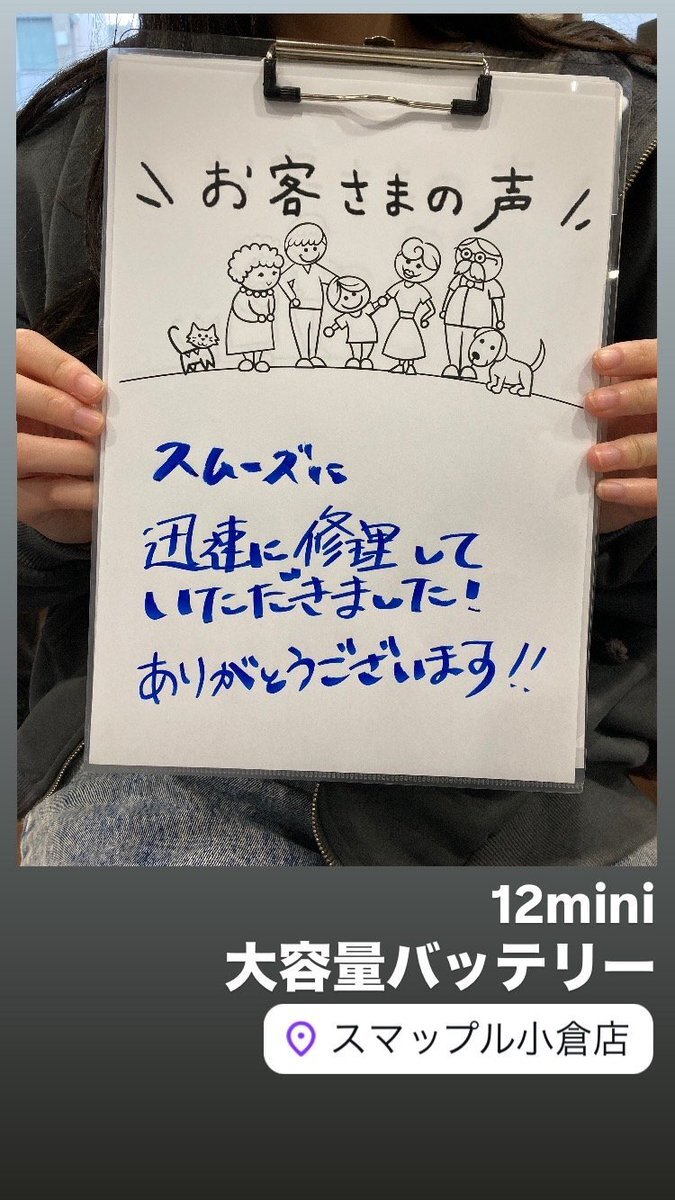 \ お客さまの声 /
スムーズに
迅速に修理して
いただきました!
ありがとうございます!!
12mini
大容量バッテリー
スマップル小倉店